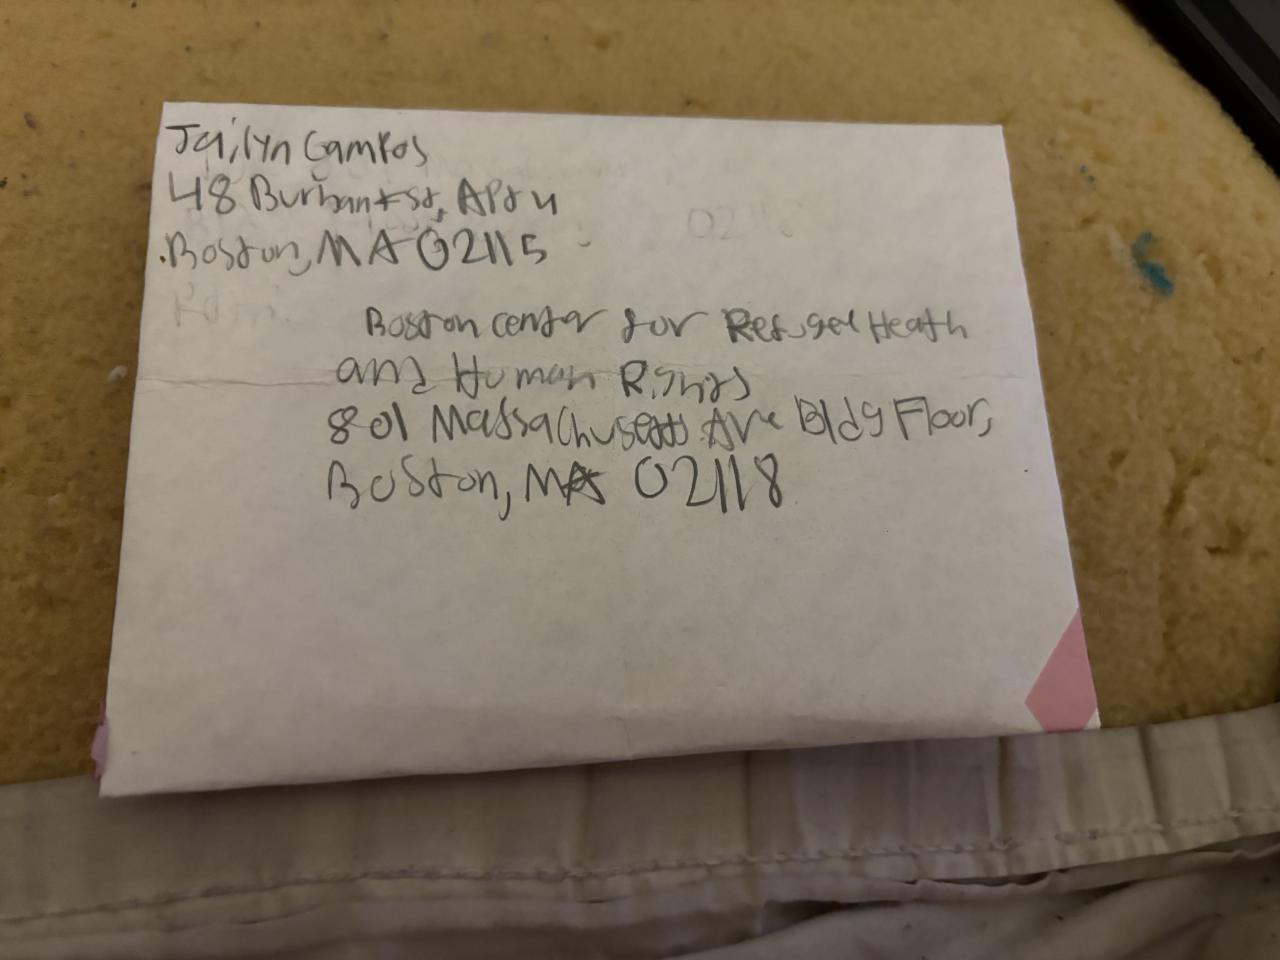 Jailyn Campos
48 Burbank St, Apt 4
Boston, MA 02115
02118
Boston center for Refugee Heath
and Human Rights
801 Massachusetts Ave Bldg Floor,
Boston, MA 02118